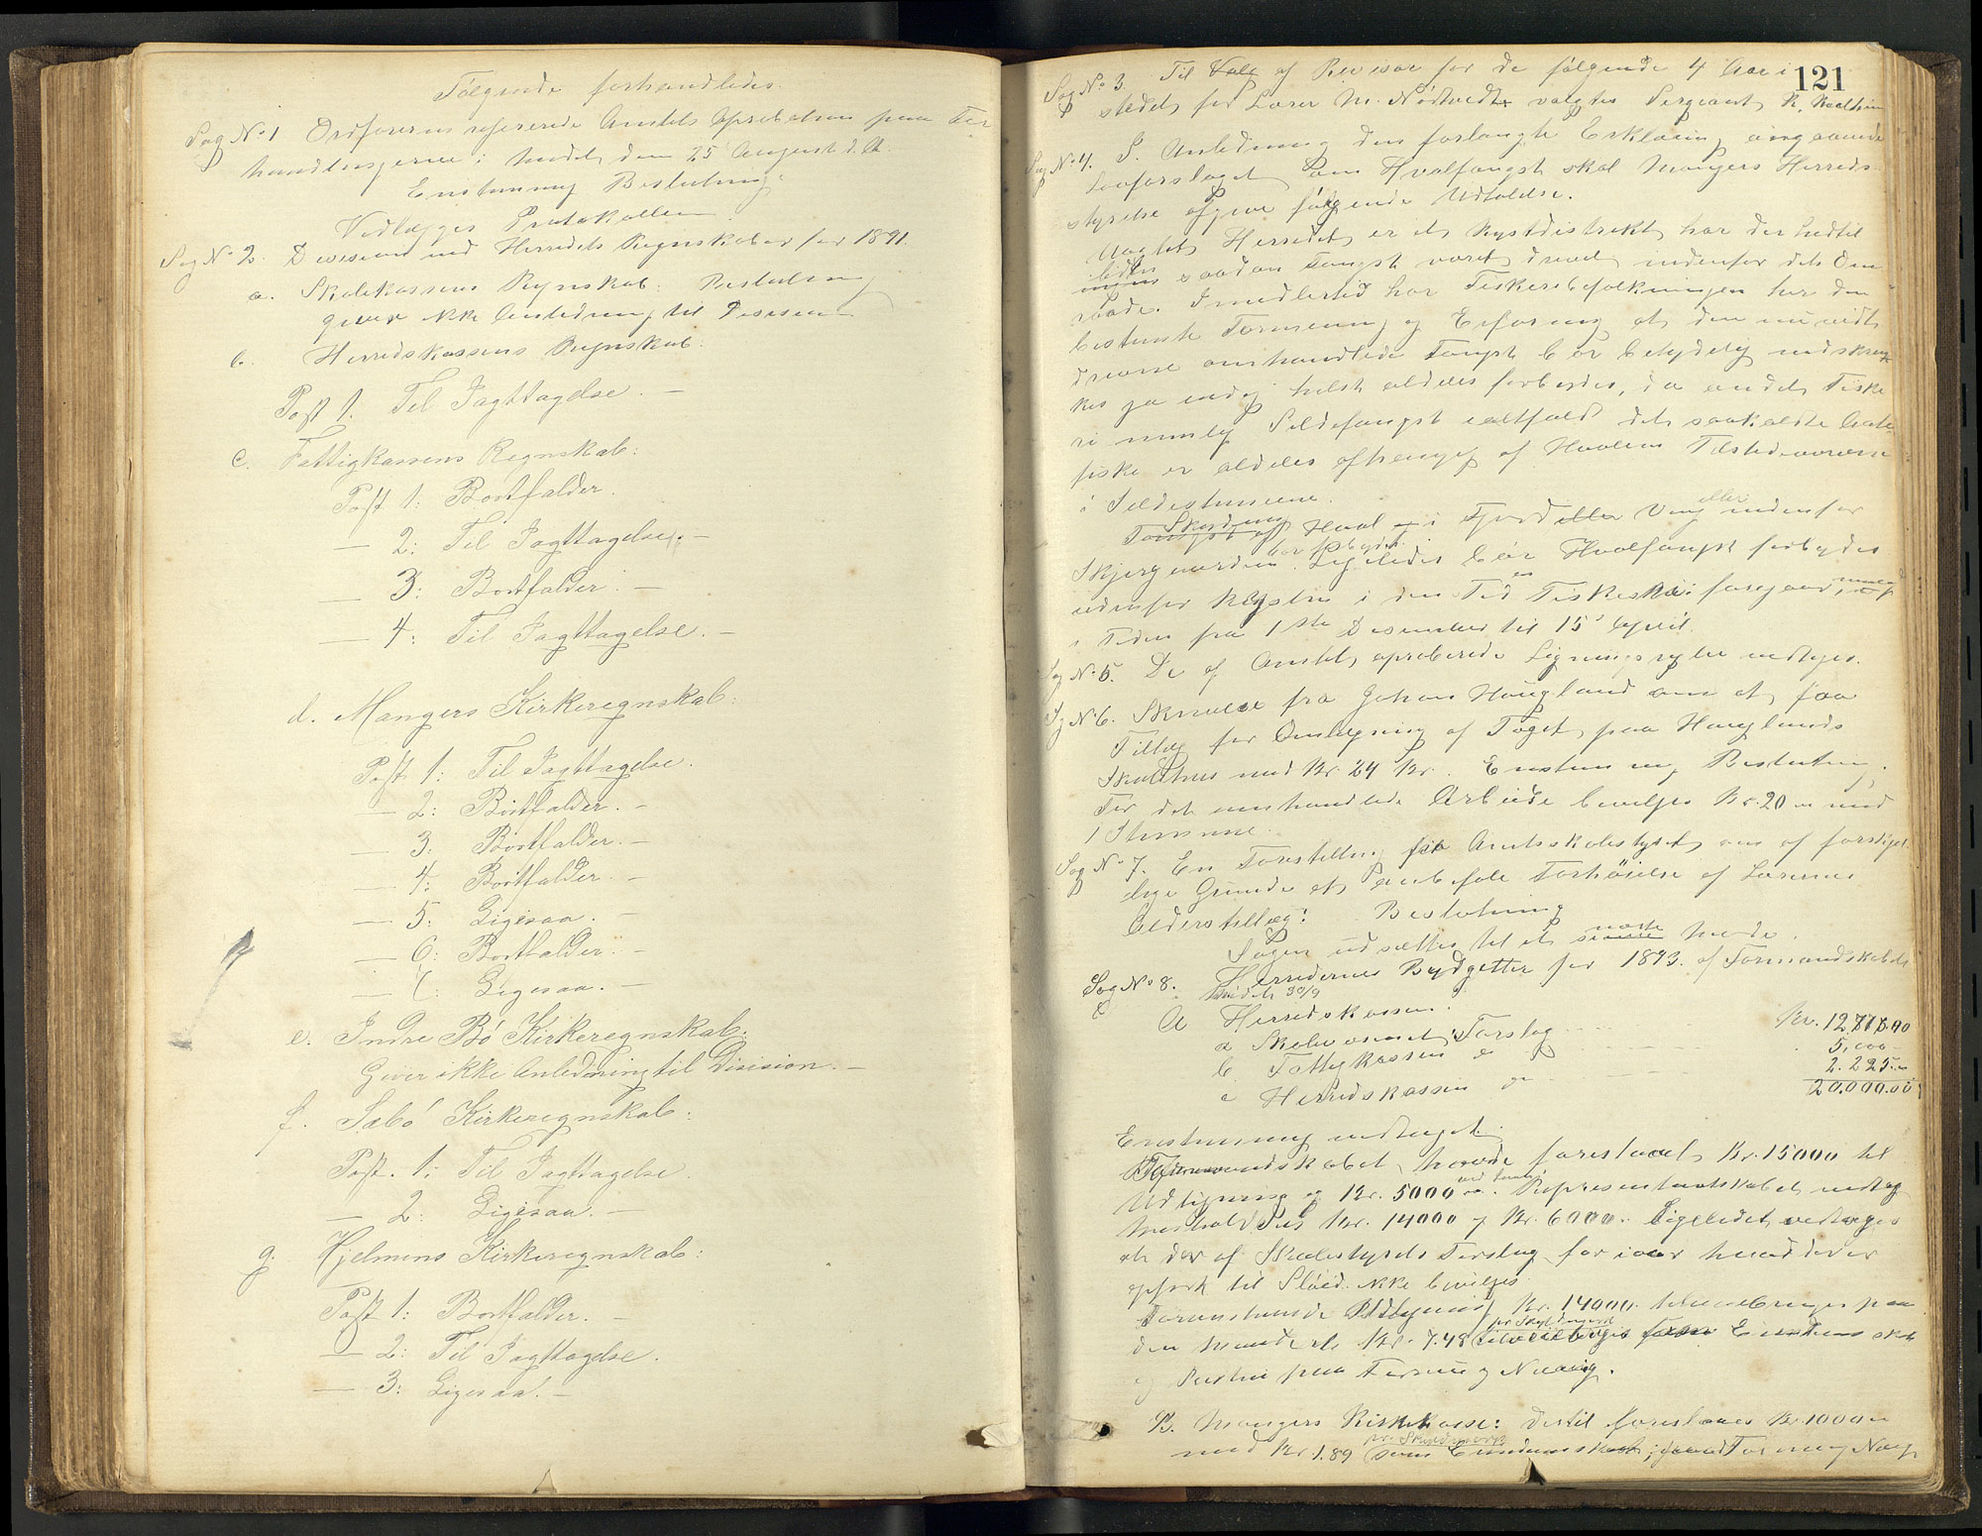 Følgende forhandledes.
Sag No 1 Ordføreren refererede Amtets Aprobation paa For-
handlingerne i Mødet den 25 August d.A.
Enstemmig Beslutning:
Vedlægges Protokollen.
Sag No 2. Decision ved Herredets Regnskaber for 1891.
a. Skolekassens Regnskab: Beslutning
giver ikke Anledning til Desision
b. Herredskassens Regnskab:
Post 1. Til Iagttagelse. —
c. Fattigkassens Regnskab:
Post 1: Bortfalder.
— 2: Til Iagttagelse. —
— 3: Bortfalder. —
— 4: Til Iagttagelse. —
d. Mangers Kirkeregnskab:
Post 1: Til Iagttagelse.
— 2: Bortfalder. —
— 3: Bortfalder. —
— 4: Bortfalder. —
— 5: Ligesaa. —
— 6: Bortfalder. —
— 7: Ligesaa. —
e. Indre Bö Kirkeregnskab:
Giver ikke Anledning til Disision. —
f. Sæbö Kirkeregnskab:
Post. 1: Til Iagttagelse
— 2: Ligesaa. —
g. Hjelmens Kirkeregnskab:
Post 1: Bortfalder. —
— 2: Til Iagttagelse.
— 3: Ligesaa. —
121
Sag No 3. Til Valg af Revisor for de følgende 4 Aar i
stedet for Lærer M. Nödtvedt valgtes Sergeant R.
Sag No 4. I Anledning den forlangte Erklæring angaaende
Lovforslaget om Hvalfangst skal Mangers Herreds-
styrelse afgive følgende Udtalelse.
Uagtet Herredet er et Kystdistrikt har der hidtil
liden
ingen saadan Fangst været drevet indenfor dets Om
raade. Imidlertid har Fiskeribefolkningen her den
bestemte Formening og Erfaring at den nu vidt
drevne omhandlede Fangst bør betydelig indskræn-
kes ja endog helst aldeles forbydes, da andet Fiske
ri nemlig Sildefangst ialtfald det saakaldte
fiske er aldeles afhængig af Hvalens Tilstedeværelse
i Sildestimene.
Skydning eller
Fangst af Hval i Fjord eller Vaag indenfor
bør forbydes.
Skjærgaarden. Ligeledes bør Hvalfangst forbydes
udenfor Kysten i den Tid Fiskeri foregaar, nemlig
i Tiden fra 1ste Desember til 15 April.
Sag No 5. De af Amtet aproberede Ligningsregler vedtages.
Sag No 6. Skrivelse fra Johan Haugland om at faa
Tillæg for Omlægning af Taget paa Hauglands
Skolehus med Kr. 24 Kr. Enstemmig Beslutning:
For det omhandlede Arbeide bevilges Kr. 20 mod
1 Stemme.
Sag No 7. En Forestilling fra Amtsskolestyret om af forskjel
lige Grunde at anbefale Forhöielse af Lærernes
Alderstillæg: Beslutning
næste
Sagen udsættes til et senere Møde.
Sag No 8. Herredernes Budgetter for 1893. af Formandskabets
Mødet 30/9
A Herredskassen.
a Skolevæsenet Forslag Kr. 12
b Fattigkassen do 5,000 —
c Herredskassen do 2.225.
20.000.00
Enstemmig vedtaget.
Formandskabet havde foreslaaet Kr. 15000 til
Udligning og Kr. 5000. Repræsentantskabet vedtog
Kr. 14000 og Kr. 6000. Ligeledes vedtoges
at der af Skolestyrets Forslag for iaar hvad der er
opført til Slöid ikke bevilges.
Foranstaaende Udligning Kr. 14000 tilveiebringes paa
pr Skyldmark
den Maade at Kr. 7.48 tilveiebringes som Eiendomsskat
og Resten paa Formue og Næring.
B. Mangers Kirkekasse: Dertil foreslaaes Kr. 1000
pr. Skyldmark
med Kr. 1.89 som Eiendomsskat, paa Formue og Næring